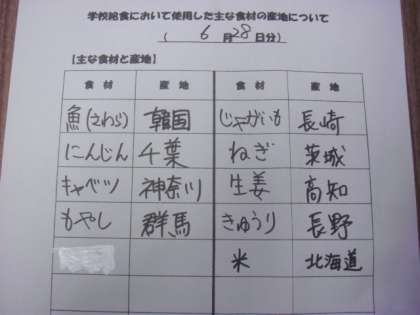 学校給食において使用した主な食材の産地について
( 6月28日分)
【主な食材と産地】
食材 産地 食材 産地
魚(さわら) 韓国 じゃがいも 長崎
にんじん 千葉 ねぎ 茨城
キャベツ 神奈川 生姜 高知
もやし 群馬 きゅうり 長野
米 北海道